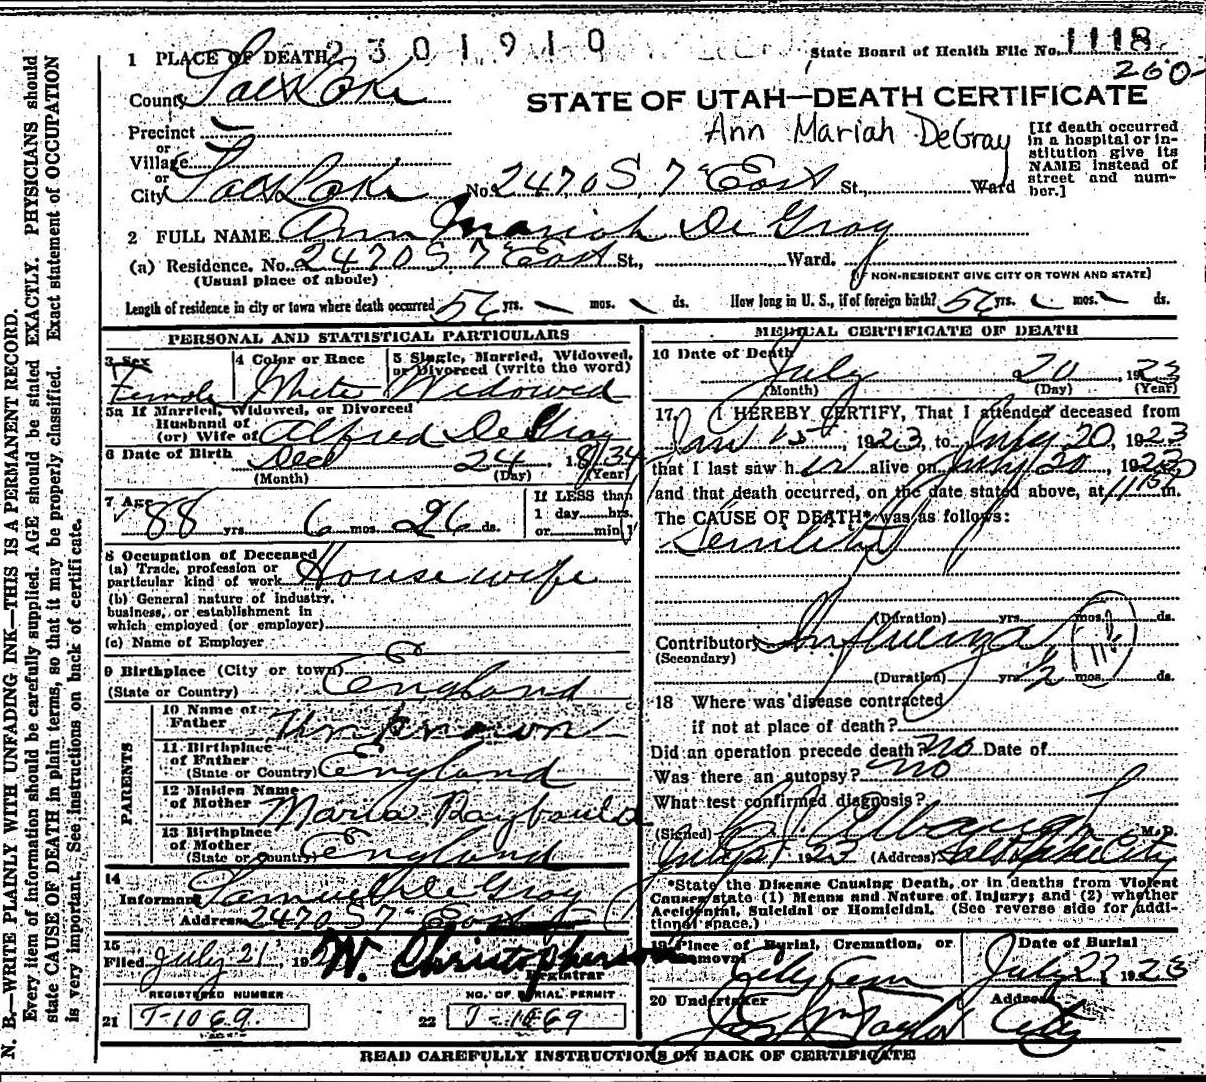 N. B.—WRITE PLAINLY WITH UNFADING INK—THIS IS A PERMANENT RECORD.
Every item of information should be carefully supplied. AGE should be stated EXACTLY. PHYSICIANS should
state CAUSE OF DEATH in plain terms, so that it may be properly classified. Exact statement of OCCUPATION
is very important. See instructions on back of certificate.
2301910
State Board of Health File No. 1118
260-
1 PLACE OF DEATH
County Salt Lake
STATE OF UTAH—DEATH CERTIFICATE
Ann Mariah DeGray
Precinct
or
Village
or
City Salt Lake No. 2470 S, 7" East St., Ward
[If death occurred
in a hospital or in-
stitution give its
NAME instead of
street and num-
ber.]
2 FULL NAME Ann Mariah De Gray
(a) Residence. No. 2470 S 7" East St., Ward.
(Usual place of abode) (If NON-RESIDENT GIVE CITY OR TOWN AND STATE)
Length of residence in city or town where death occurred 56 yrs. — mos. ds. How long in U. S., if of foreign birth? 56 yrs. mos. ds.
PERSONAL AND STATISTICAL PARTICULARS
3 Sex
Female
4 Color or Race
White
5 Single, Married, Widowed,
or Divorced (write the word)
Widowed
5a If Married, Widowed, or Divorced
Husband of
(or) Wife of Alfred De Gray
6 Date of Birth Dec 24, 1834
(Month) (Day) (Year)
7 Age
88 yrs 6 mos 26 ds.
If LESS than
1 day hrs.
or min
8 Occupation of Deceased
(a) Trade, profession or
particular kind of work Housewife
(b) General nature of industry,
business, or establishment in
which employed (or employer)
(c) Name of Employer
9 Birthplace (City or town)
(State or Country) England
PARENTS
10 Name of
Father Unknown
11 Birthplace
of Father
(State or Country) England
12 Maiden Name
of Mother Maria Raybould
13 Birthplace
of Mother
(State or Country) England
14
Informant Samuel De Gray
Address 2470 S 7" East
15
Filed July 21, 192 W. Christopherson
Registrar
REGISTERED NUMBER
21 T-1069.
NO. OF BURIAL PERMIT
22 T-1069
MEDICAL CERTIFICATE OF DEATH
16 Date of Death
July 20, 1923
(Month) (Day) (Year)
17. I HEREBY CERTIFY, That I attended deceased from
Jan 15, 1923, to July 20, 1923
that I last saw her alive on July 20, 1923
and that death occurred, on the date stated above, at m.
The CAUSE OF DEATH* was as follows:
Senility
(Duration) yrs. mos. ds.
Contributory Influenza
(Secondary)
(Duration) yrs. ½ mos. ds.
18 Where was disease contracted
if not at place of death?
Did an operation precede death? no Date of
Was there an autopsy? no
What test confirmed diagnosis?
(Signed) Albaugh M.D.
1923 (Address) Salt Lake City
*State the Disease Causing Death, or in deaths from Violent
Causes state (1) Means and Nature of Injury; and (2) whether
Accidental, Suicidal or Homicidal. (See reverse side for addi-
tional space.)
19 Place of Burial, Cremation, or
Removal
City Cem
Date of Burial
July 22 1923
20 Undertaker
Jos Wm Taylor
Address
City
READ CAREFULLY INSTRUCTIONS ON BACK OF CERTIFICATE